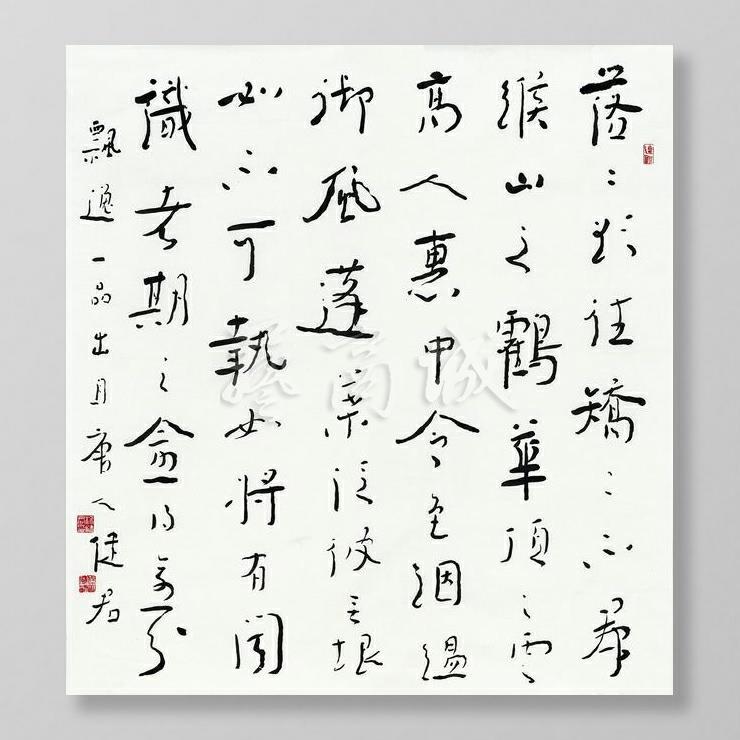 落々欲往矯々不群
緱山之鶴華頂之雲
高人惠中令色絪縕
御風蓬葉泛彼無垠
如不可執如將有聞
識者期之愈得愈分
飄逸一品出自唐人 健君
藝商城